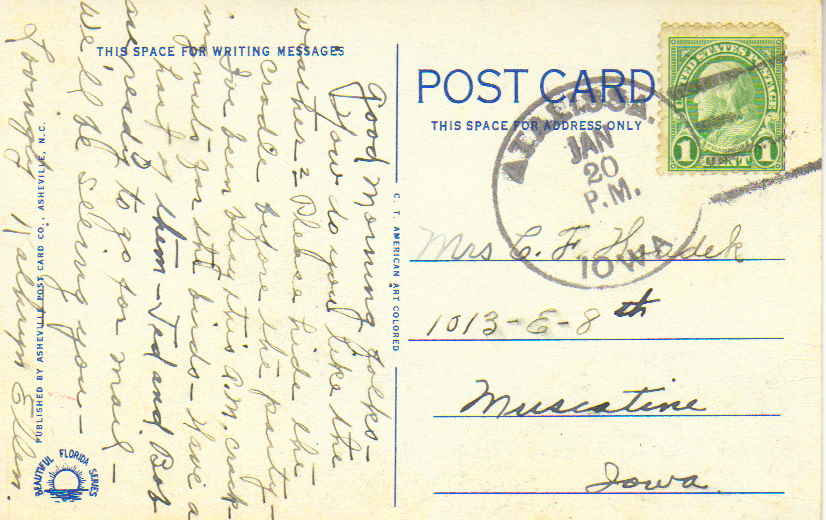 THIS SPACE FOR WRITING MESSAGES
Good Morning folks -
How do you like the
weather? Please hide the
cradle before the party -
I've been busy this A.M. crack-
ing nuts for the birds - Have a
of them - Ted and Bob
are ready to go for mail -
We'll be seeing you -
Lovingly Ellen.
PUBLISHED BY ASHEVILLE POST CARD CO., ASHEVILLE, N.C.
BEAUTIFUL FLORIDA SERIES
C. T. AMERICAN ART COLORED
POST CARD
THIS SPACE FOR ADDRESS ONLY
JAN
20
P.M.
IOWA
UNITED STATES POSTAGE
1 CENT 1
Mrs C. F.
1013-E-8th
Muscatine
Iowa.